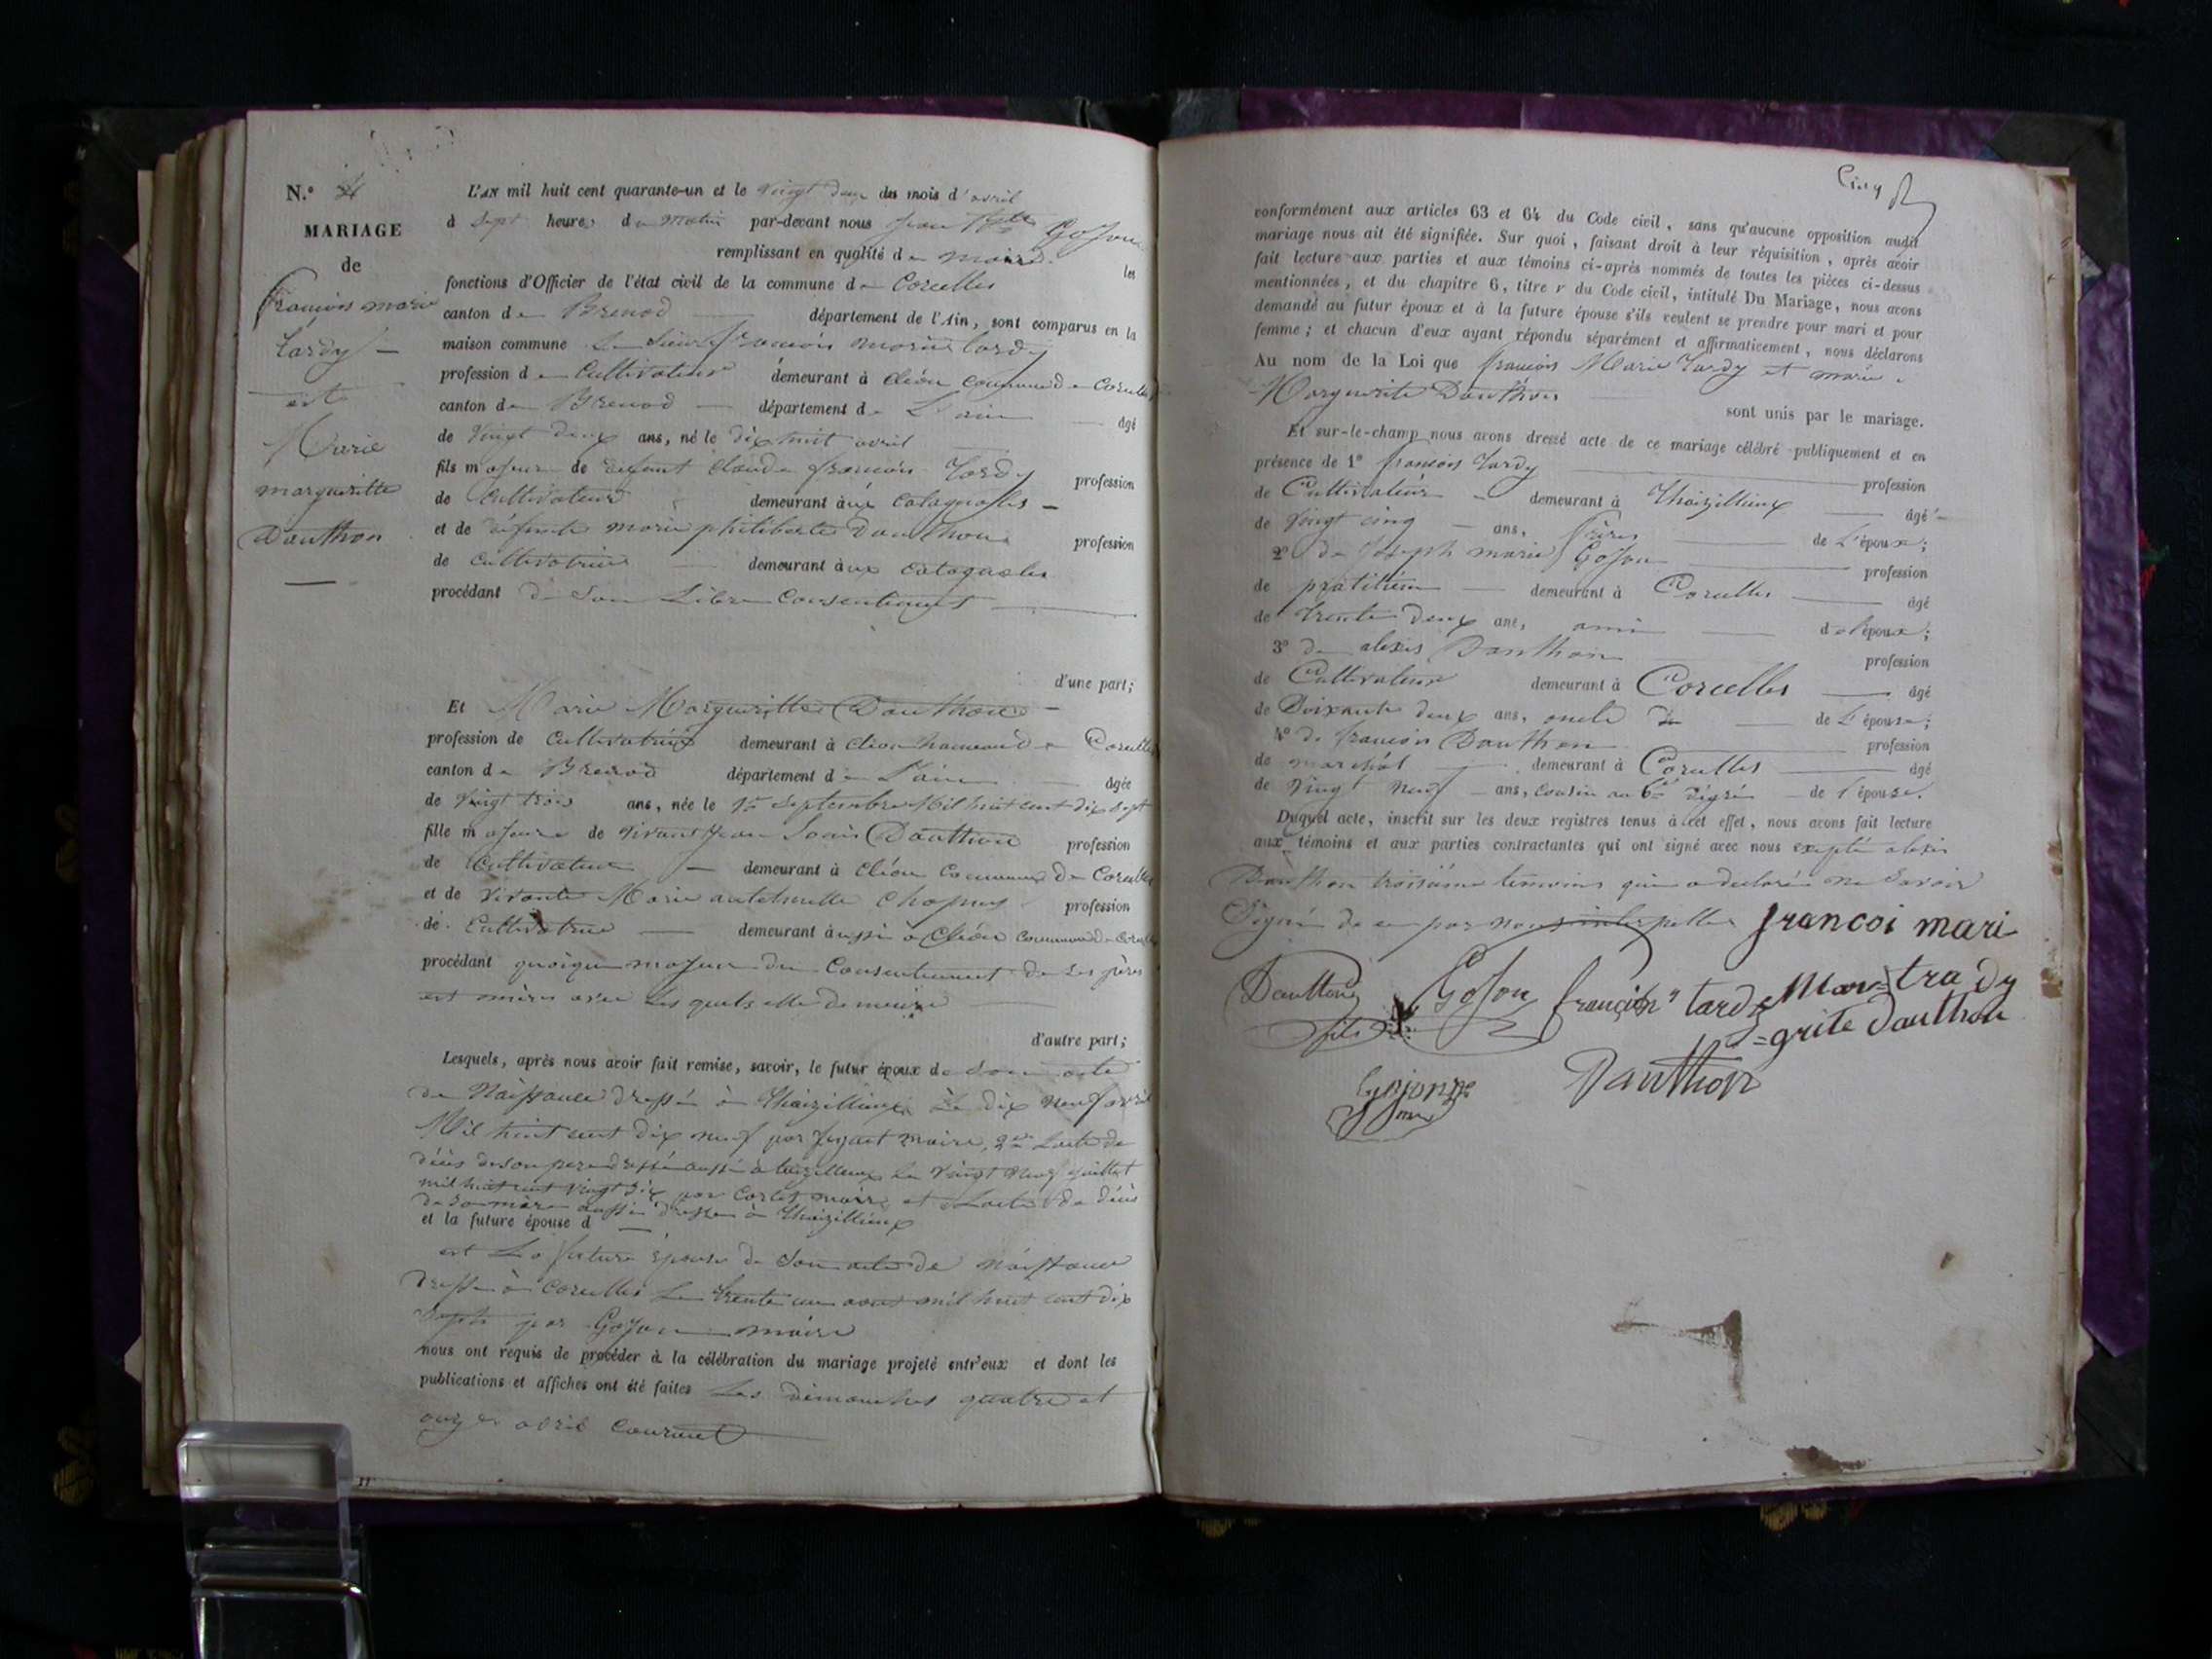 N.º 4
MARIAGE
de
François marie
tardy
et
Marie
margueritte
Dauthon
L'AN mil huit cent quarante-un et le vingt deux du mois d'avril
à sept heures du matin par-devant nous Gojon
remplissant en qualité de maire les
fonctions d'Officier de l'état civil de la commune de Corcelles
canton de Brenod département de l'Ain, sont comparus en la
maison commune Le Sieur françois marie tardy
profession de Cultivateur demeurant à cléon commune de Corcelles
canton de Brenod département de L'ain âgé
de vingt deux ans, né le dix huit avril
fils majeur de défunt Claude françois Tardy profession
de Cultivateur demeurant aux Catagnolles
et de défunte marie philiberte Dauthon profession
de cultivatrice demeurant aux Catagnoles
procédant de Son Libre Consentement
d'une part;
Et Marie Margueritte Dauthon
profession de Cultivatrice demeurant à cléon hameau de Corcelles
canton de Brenod département de L'ain âgée
de Vingt trois ans, née le 1er Septembre Mil huit cent dix sept
fille majeure de vivant Jean Louis Dauthon profession
de Cultivateur demeurant à Cléon Commune de Corcelles
et de vivante Marie antoinette Chapuy profession
de Cultivatrice demeurant aussi à Cléon commune de Corcelles
procédant quoique majeure du Consentement de Ses père
et mère avec les quels elle demeure
d'autre part;
Lesquels, après nous avoir fait remise, savoir, le futur époux de Son acte
de Naissance dressé à Thézillieux Le dix neuf avril
Mil huit cent dix neuf par maire, 2me Lacte de
décès de son père dressé aussi à le vingt neuf juillet
mil huit cent vingt six par maire et Lacte de décès
de Sa mère aussi dressé à Thézillieux
et la future épouse d
et La future épouse de Son acte de Naissance
dressé à Corcelles Le trente un aout mil huit cent dix
Sept par Gojon maire
nous ont requis de procéder à la célébration du mariage projeté entr'eux et dont les
publications et affiches ont été faites Les dimanches quatre et
onze avril Courant
11
Cinq
conformément aux articles 63 et 64 du Code civil, sans qu'aucune opposition audit
mariage nous ait été signifiée. Sur quoi, faisant droit à leur réquisition, après avoir
fait lecture aux parties et aux témoins ci-après nommés de toutes les pièces ci-dessus
mentionnées, et du chapitre 6, titre v du Code civil, intitulé Du Mariage, nous avons
demandé au futur époux et à la future épouse s'ils veulent se prendre pour mari et pour
femme; et chacun d'eux ayant répondu séparément et affirmativement, nous déclarons
Au nom de la Loi que françois Marie Tardy et marie
Marguerite Dauthon
sont unis par le mariage.
Et sur-le-champ nous avons dressé acte de ce mariage célébré publiquement et en
présence de 1º françois Tardy profession
de Cultivateur demeurant à Thézillieux âgé
de Vingt cinq ans, frères de L'époux;
2º de Joseph marie Gojon profession
de pratitien demeurant à Corcelles âgé
de trente deux ans, ami de l'époux;
3º de alexis Dauthon profession
de Cultivateur demeurant à Corcelles âgé
de Soixante deux ans, oncle de L'épouse;
4º de françois Dauthon profession
de marchal demeurant à Corcelles âgé
de Vingt neuf ans, cousin au 6me degré de l'épouse.
Duquel acte, inscrit sur les deux registres tenus à cet effet, nous avons fait lecture
aux témoins et aux parties contractantes qui ont signé avec nous excepté alexis
Dauthon troisième témoins qui a déclaré ne Savoir
Signé de ce par nous interpellé francoi mari
Dauthon Gojon françois tardy Mar= trady
fils =grite dauthon
Dauthon